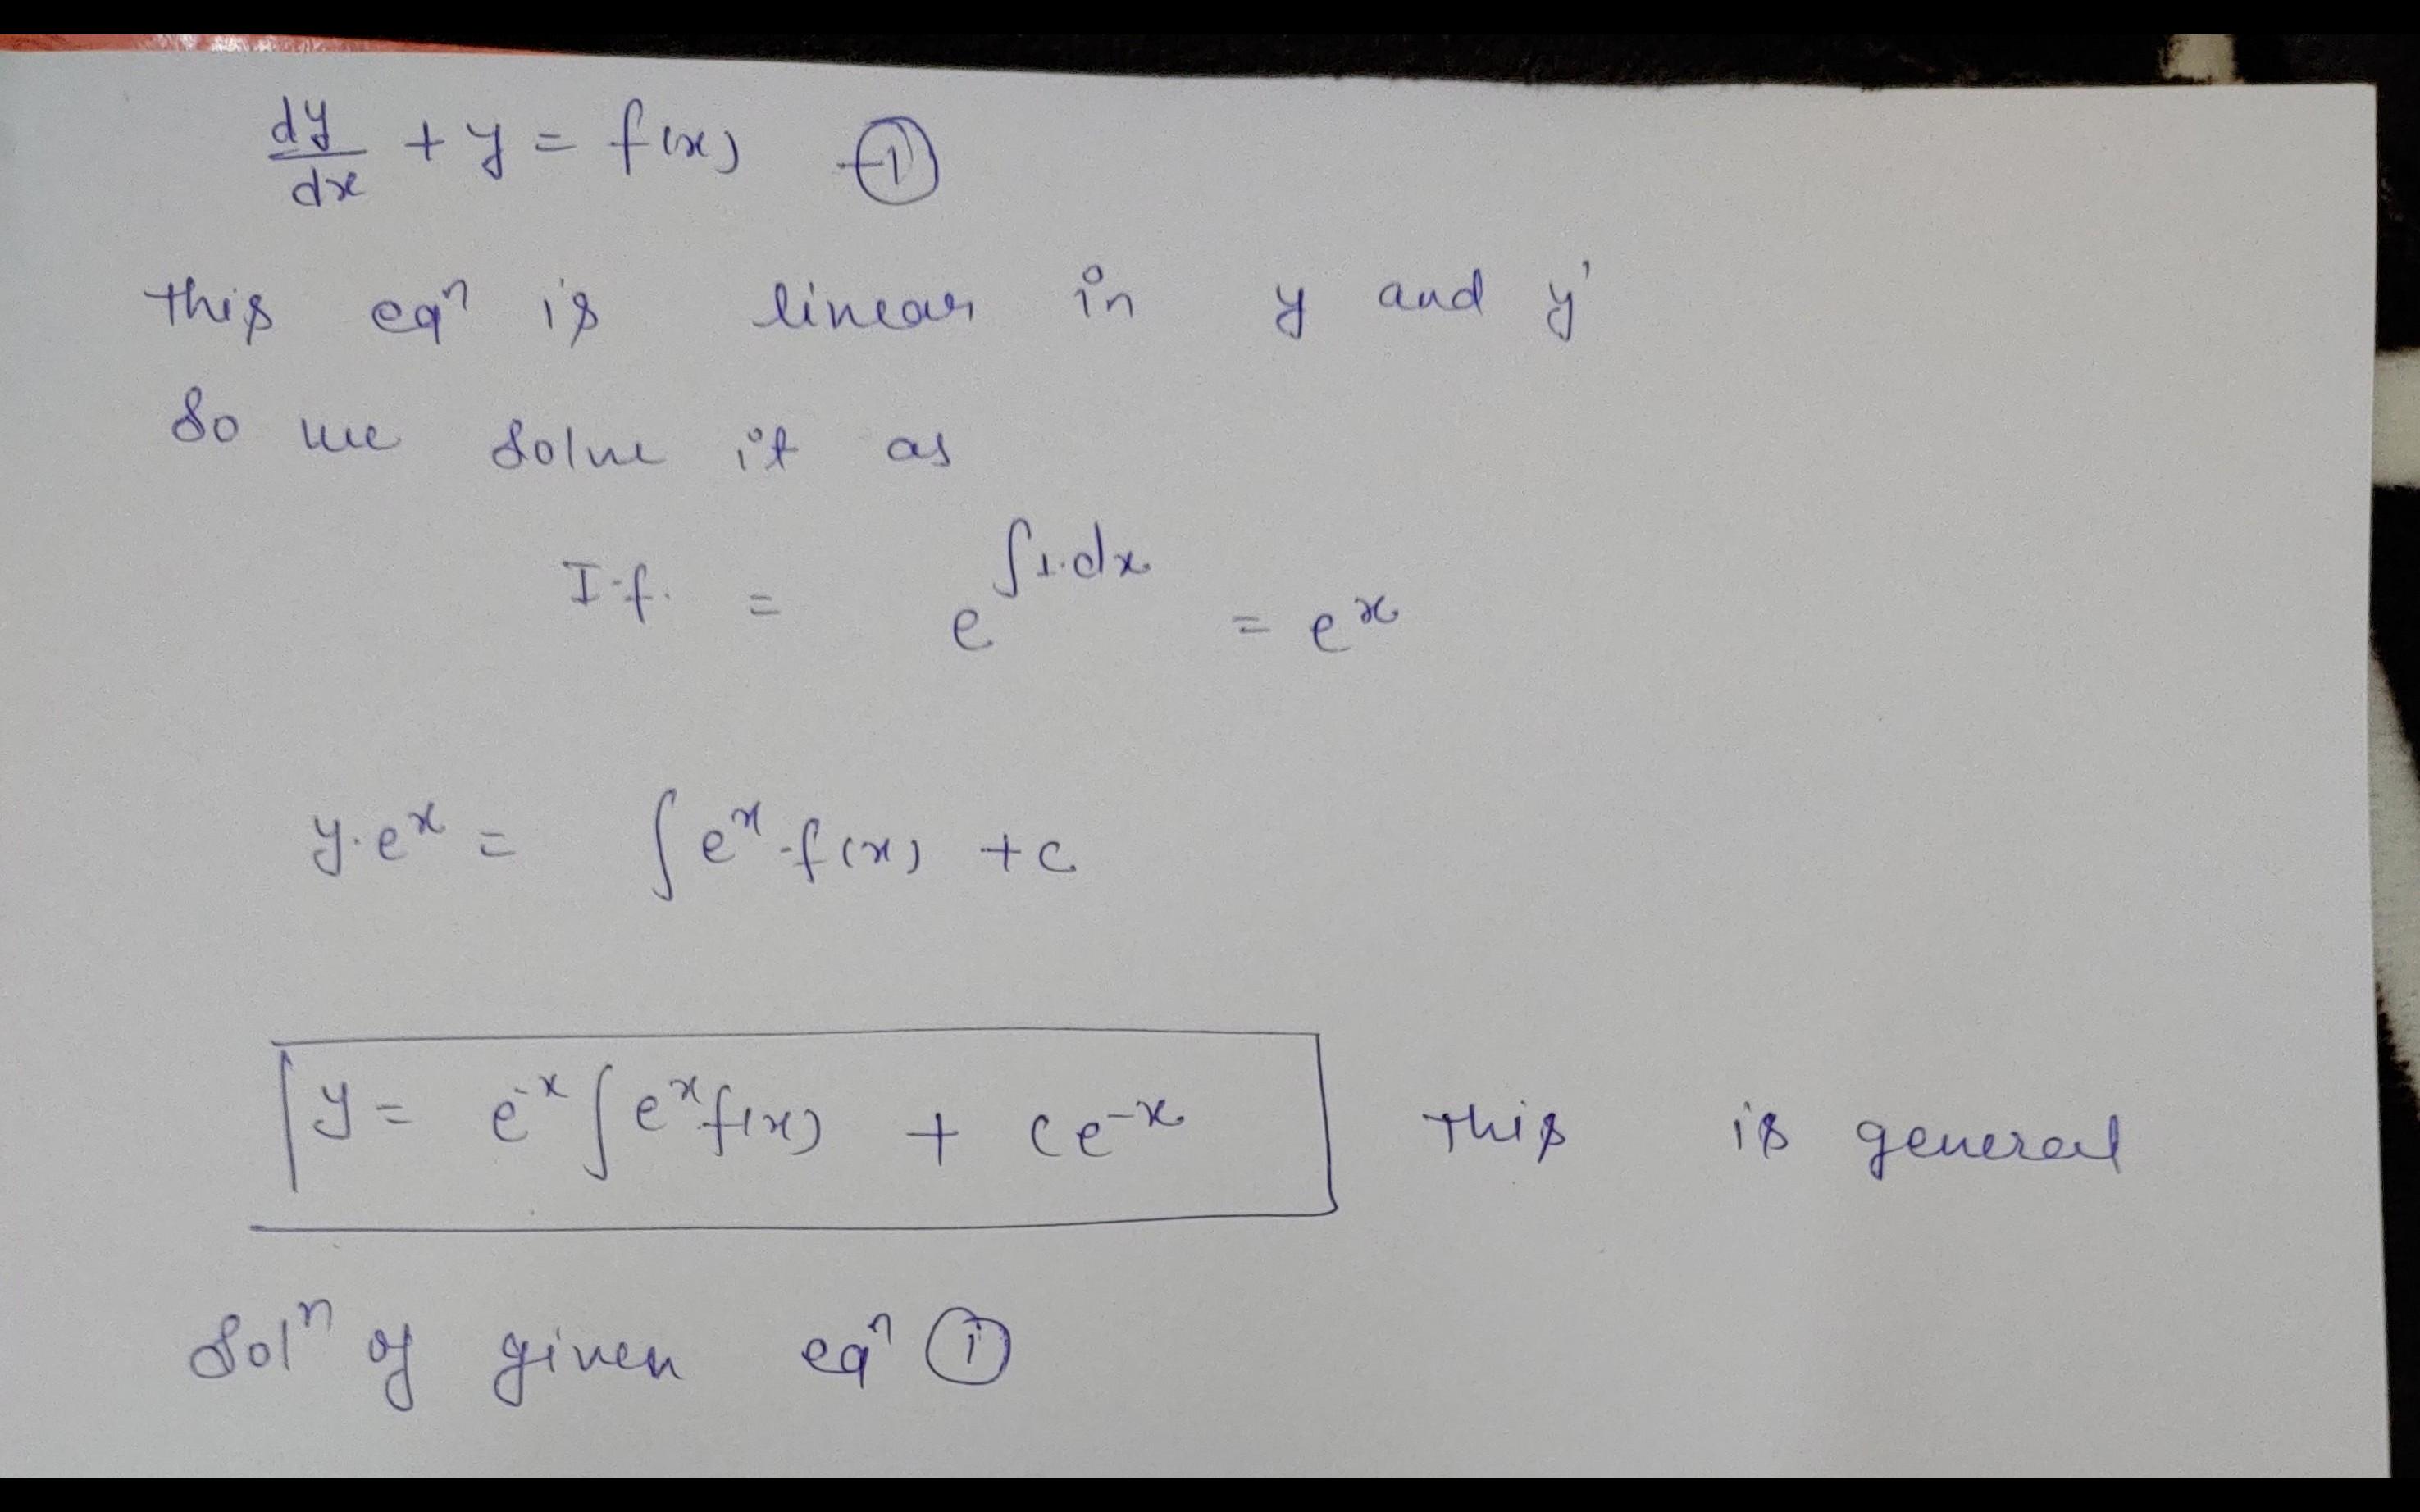 dy/dx + y = f(x) —①
this eqⁿ is linear in y and y'
So we solve it as
I.f. = e^∫1.dx = e^x
y.e^x = ∫e^x.f(x) + c
y = e^-x ∫e^x f(x) + ce^-x This is general
Solⁿ of given eqⁿ ①